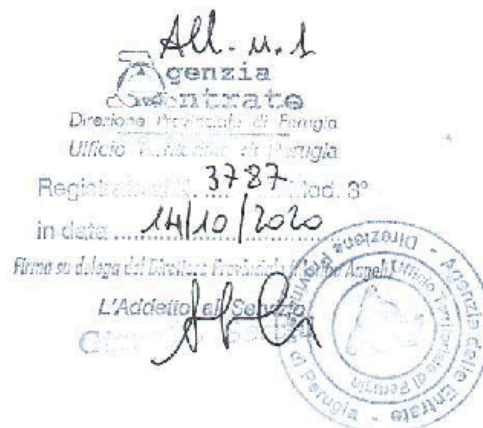 All. n. 1
Agenzia
Entrate
Direzione Provinciale di Perugia
Ufficio Territoriale di Perugia
Registrato al N. 3787 Mod. 3°
in data 14/10/2020
Firma su delega del Direttore Provinciale Angeli
L'Addetto al Servizio
Agenzia delle Entrate - Direzione Provinciale di Perugia
Ufficio Territoriale di Perugia